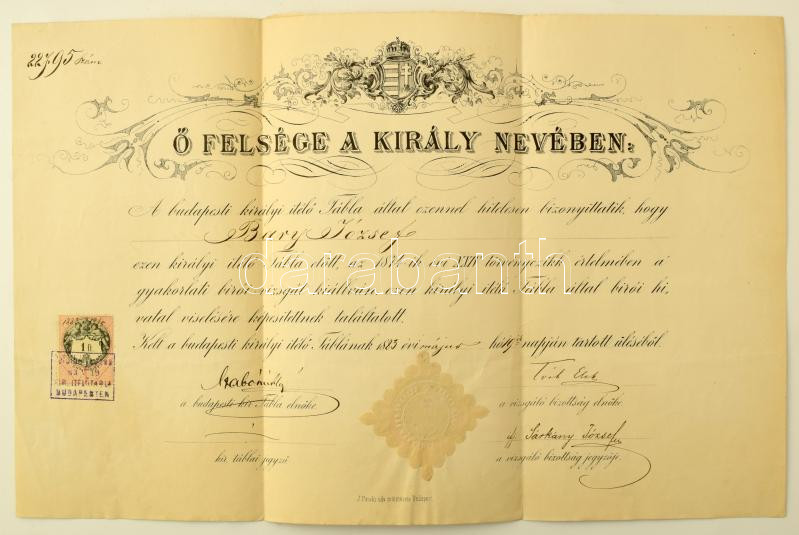 2295 szám
Ő FELSÉGE A KIRÁLY NEVÉBEN:
A budapesti királyi itélő Tábla által ezennel hitelesen bizonyittatik, hogy
Bary József
ezen királyi itélő Tábla előtt, az évi törvényczikk értelmében a
gyakorlati birói vizsgát kiállván, ezen királyi itélő Tábla által birói hi,
vatal viselésére képesitettnek találtatott.
Kelt a budapesti királyi itélő Táblának 1883 évi május hó napján tartott üléséből.
a budapesti kir. Tábla elnöke
a vizsgáló bizottság elnöke.
Sárkány József
kir. táblai jegyző
a vizsgáló bizottság jegyzője.
BUDAPESTEN
darabanth.com